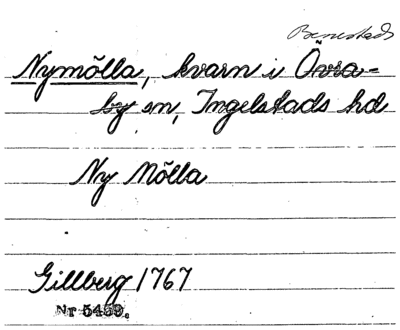 Benestads
Nymölla, kvarn i Övra-
by sn, Ingelstads hd
Ny Mölla
Gillberg 1767
Nr 5459.